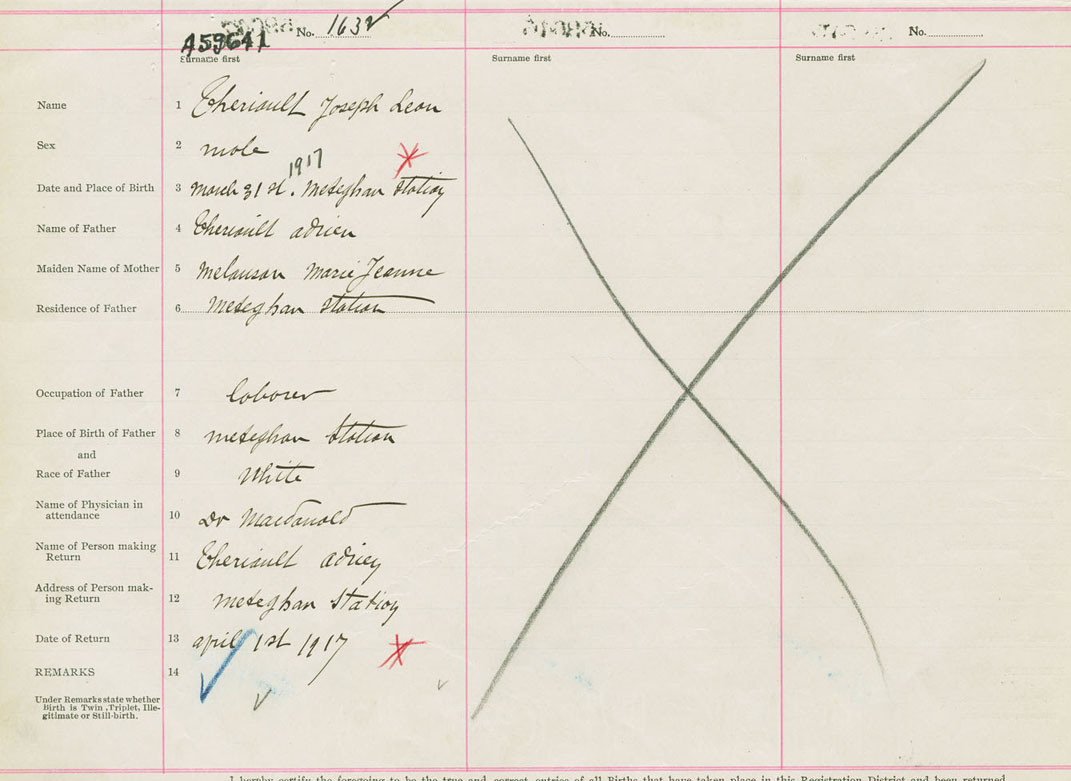 A59641 No. 1632 No. No.
Surname first Surname first Surname first
Name 1 Theriault Joseph Leon
Sex 2 male
1917
Date and Place of Birth 3 March 31st. Meteghan Station
Name of Father 4 Theriault Adrien
Maiden Name of Mother 5 Melanson Marie Jeanne
Residence of Father 6 Meteghan Station
Occupation of Father 7 laborer
Place of Birth of Father 8 Meteghan Station
and
Race of Father 9 White
Name of Physician in
attendance 10 Dr Macdonald
Name of Person making
Return 11 Theriault Adrien
Address of Person mak-
ing Return 12 Meteghan Station
Date of Return 13 april 1st 1917
REMARKS 14
Under Remarks state whether
Birth is Twin, Triplet, Ille-
gitimate or Still-birth.
I hereby certify the foregoing to be the true and correct entries of all Births that have taken place in this Registration District and been returned